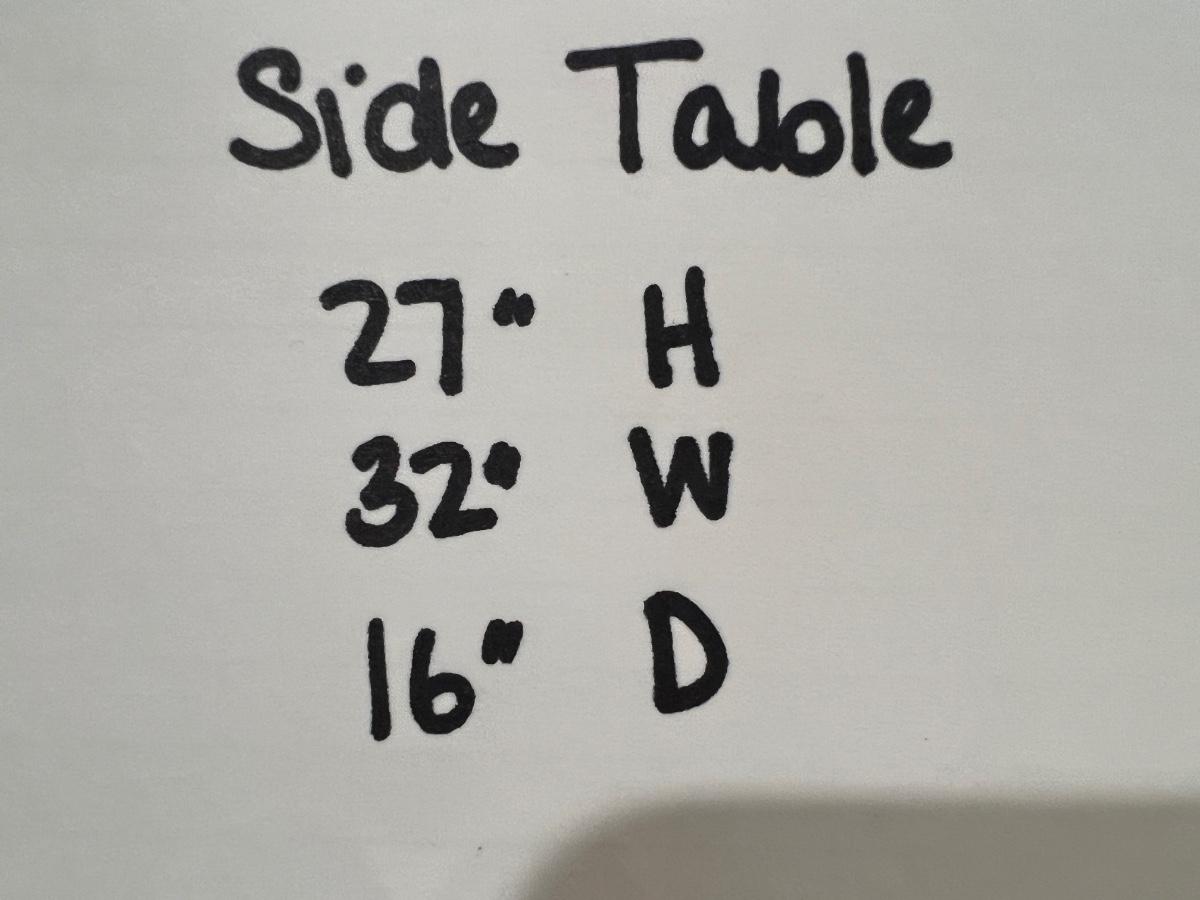 Side Table
27" H
32" W
16" D